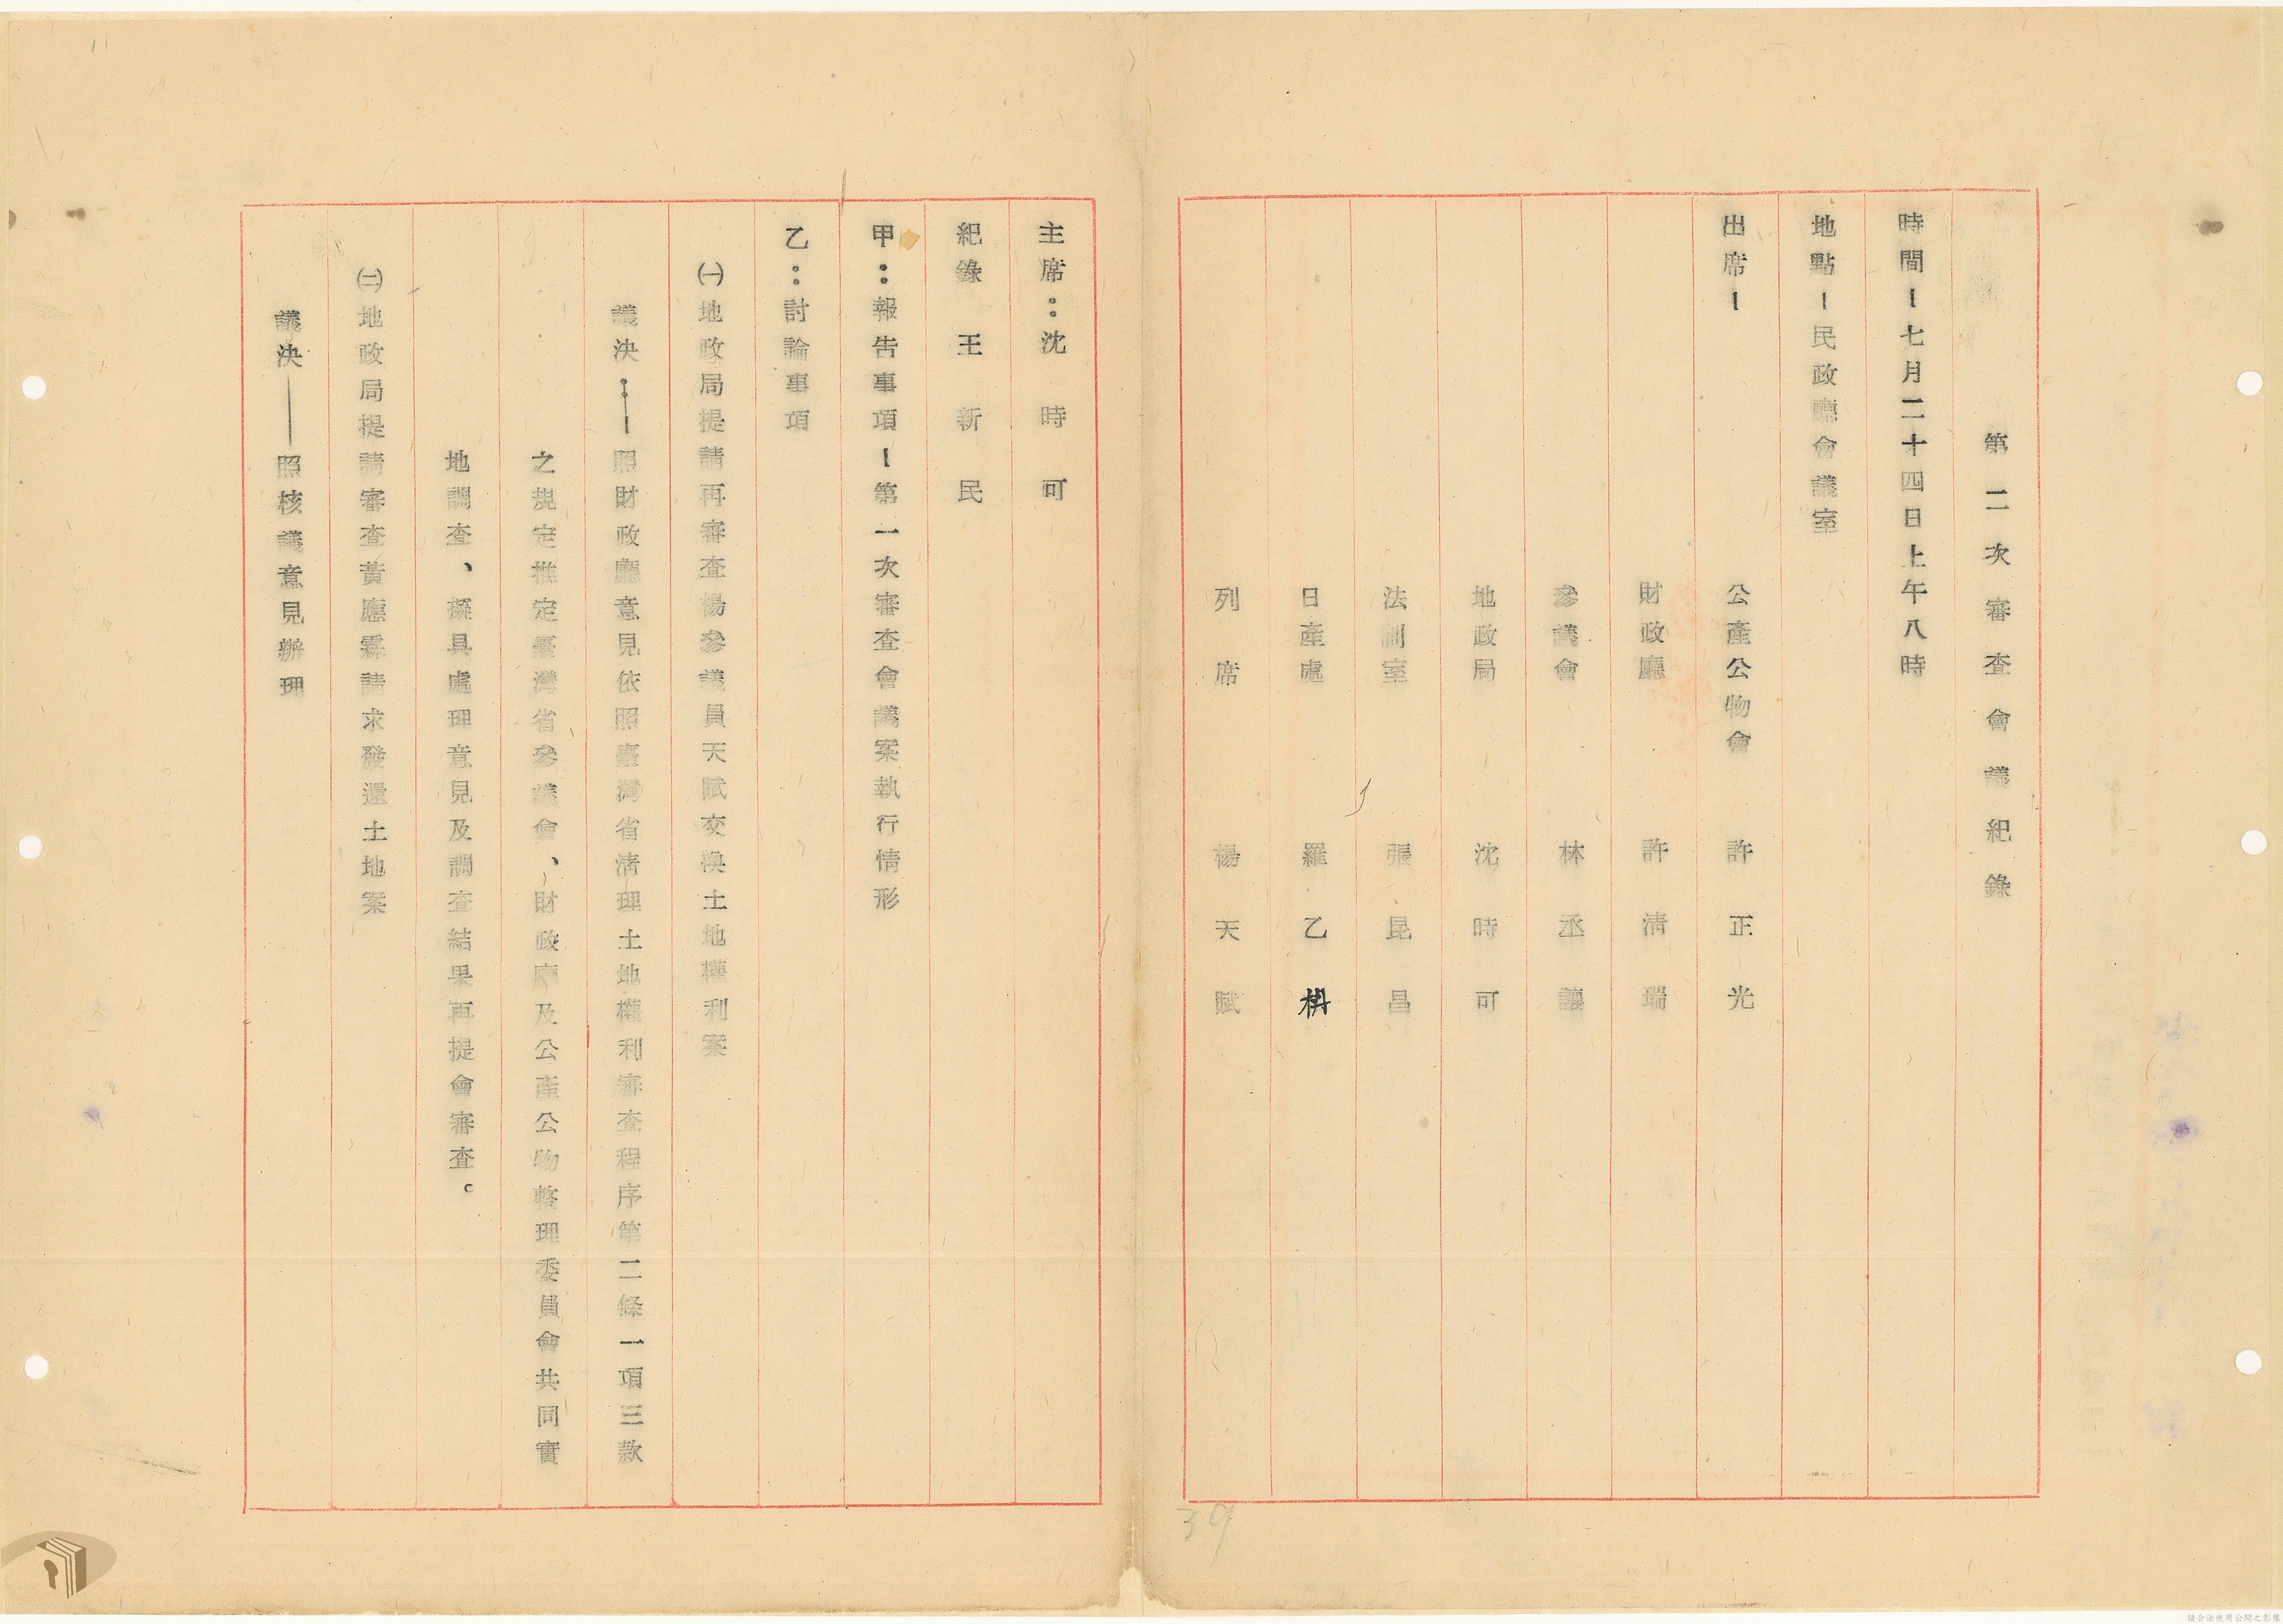 第二次審査會議紀錄
時間－七月二十四日上午八時
地點－民政廳會議室
出席－　公產公物會　許正光
財政廳　許清瑞
參議會　林丞讓
地政局　沈時可
法制室　張昆昌
日產處　羅乙枬
列席　楊天賦
主席：沈時可
紀錄　王新民
甲：報告事項－第一次審查會議案執行情形
乙：討論事項
㈠地政局提請再審查楊參議員天賦交換土地權利案
議決：－照財政廳意見依照臺灣省清理土地權利審查程序第二條一項三款
之規定推定臺灣省參議會、財政廳及公產公物整理委員會共同實
地調查、擬具處理意見及調查結果再提會審查。
㈡地政局提請審查黃應霖請求發還土地案
議決——照核議意見辦理
39
請合法使用公開之影像